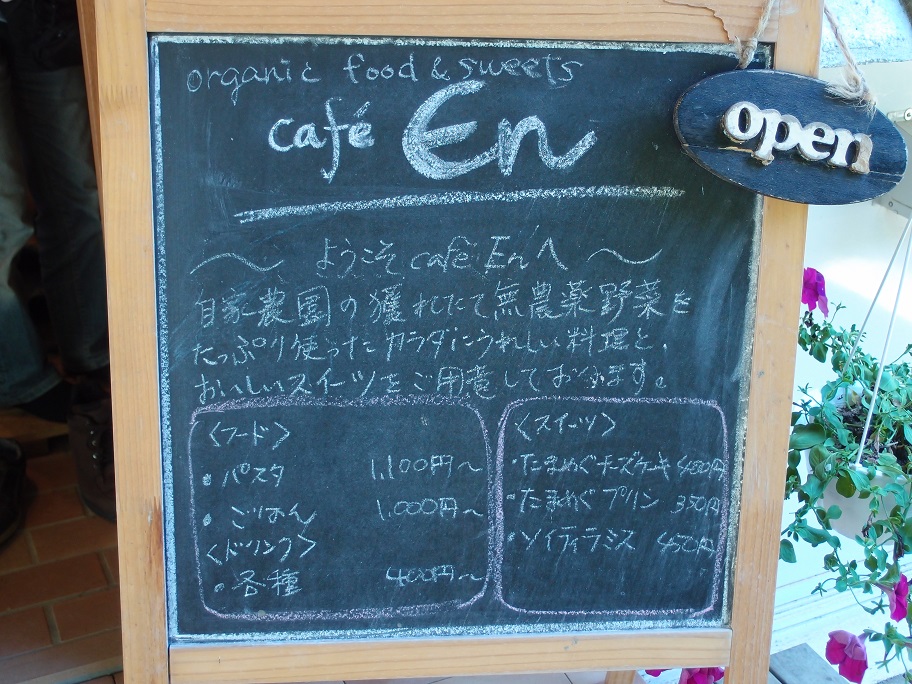 organic food & sweets
café En
open
〜 ようこそ café En へ 〜
自家農園の獲れたて無農薬野菜を
たっぷり使ったカラダにうれしい料理と、
おいしいスイーツをご用意しております。
〈フード〉
・パスタ 1,100円〜
・ごはん 1,000円〜
〈ドリンク〉
・各種 400円〜
〈スイーツ〉
・たまめぐチーズケーキ 480円
・たまめぐプリン 350円
・ソイティラミス 450円